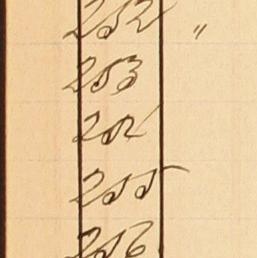 252 "
253
254
255
256